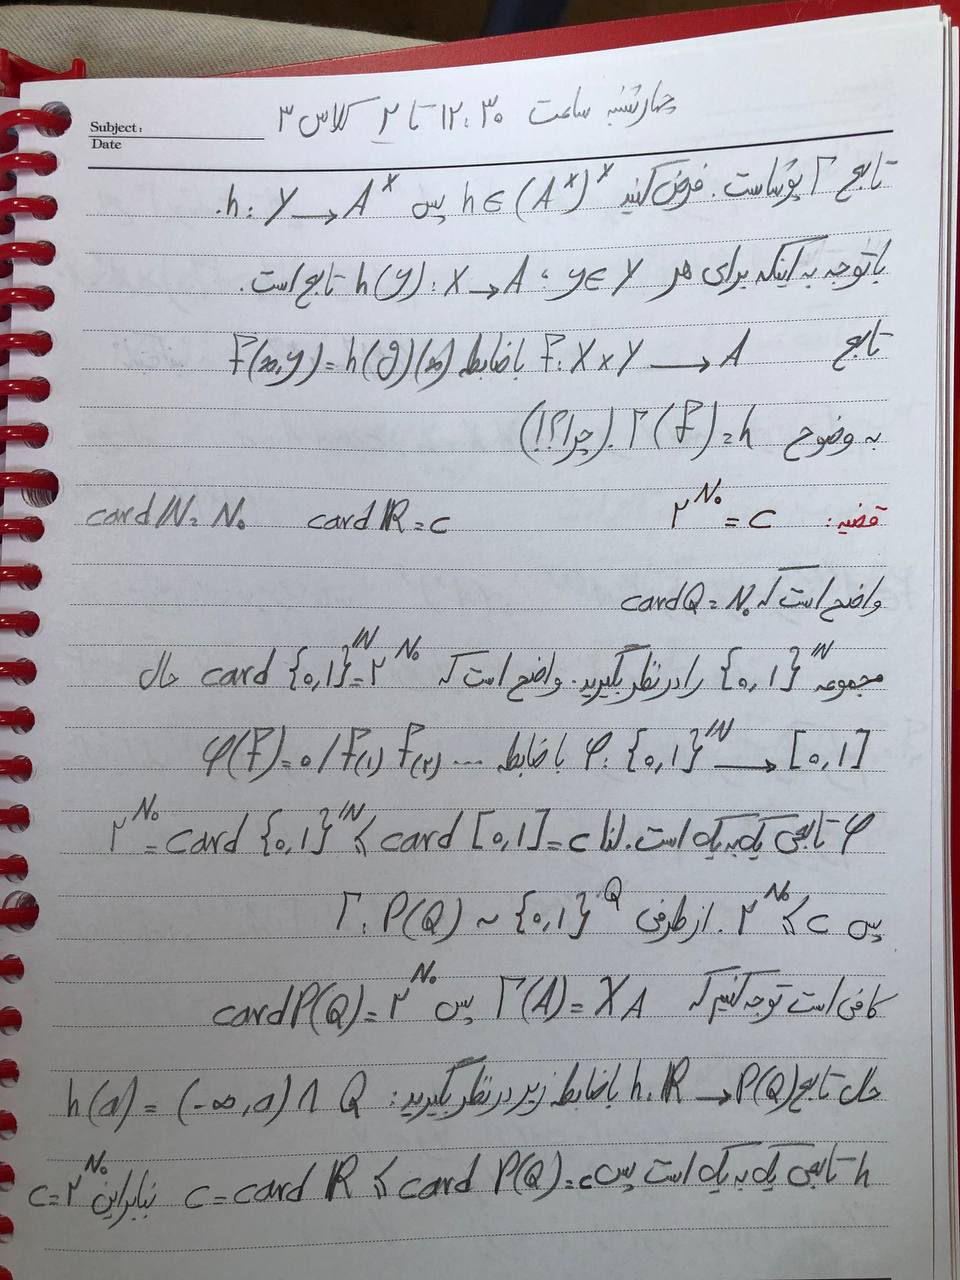 چهارشنبه ساعت ۱۲:۳۰ تا ۲ کلاس ۳
Subject:
Date
تابع Γ پوشاست. فرض کنید h ∈ (A^x)^x پس h: Y → A^x.
با توجه به اینکه برای هر y ∈ Y ؛ h(y): X → A تابع است.
تابع F: X × Y → A با ضابطه F(x,y) = h(y)(x)
به وضوح Γ(F) = h. (چرا؟!)
قضیه: ۲^N₀ = c card R = c card N = N₀
واضح است که card Q = N₀
مجموعه {۰,۱}^N را در نظر بگیرید. واضح است که card {۰,۱}^N = ۲^N₀ حال
φ: {۰,۱}^N → [۰,۱] با ضابطه φ(F) = ۰/F(۱) F(۲) ...
φ تابعی یک به یک است. لذا ۲^N₀ = card {۰,۱}^N ≤ card [۰,۱] = c
پس ۲^N₀ ≤ c. از طرفی Γ: P(Q) ~ {۰,۱}^Q
کافی است توجه کنیم که Γ(A) = χ_A پس card P(Q) = ۲^N₀
حال تابع h: R → P(Q) با ضابطه زیر در نظر بگیرید: h(a) = (-∞, a) ∩ Q
h تابعی یک به یک است پس c = card R ≤ card P(Q) = c بنابراین c = ۲^N₀